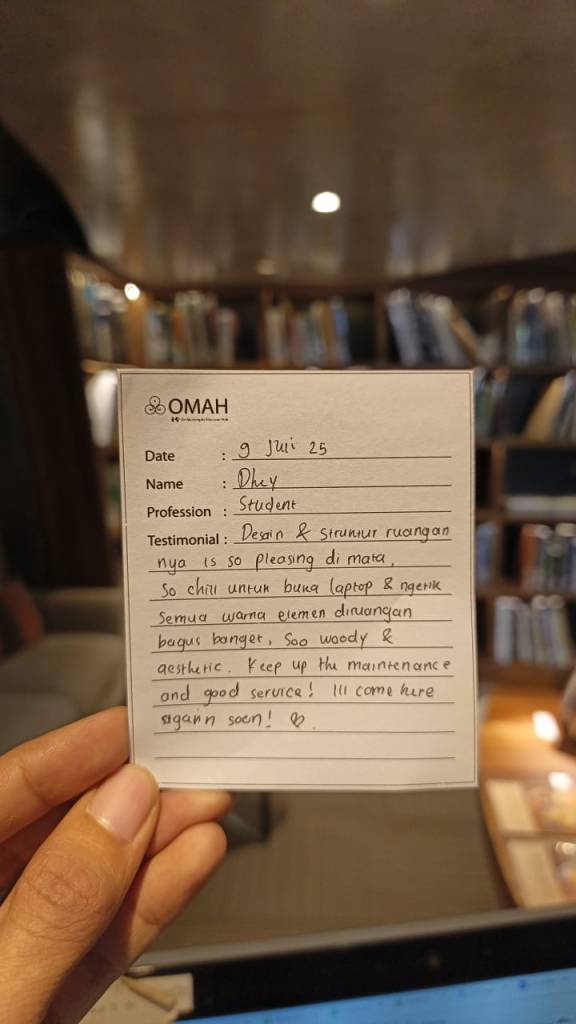 OMAH
Date : 9 Juli 25
Name : Dhey
Profession : Student
Testimonial : Desain & struktur ruangan
nya is so pleasing di mata,
So chill untuk buka laptop & ngetik
Semua warna elemen diruangan
bagus banget, Soo woody &
aesthetic. Keep up the maintenance
and good service! Ill come here
agann soon!